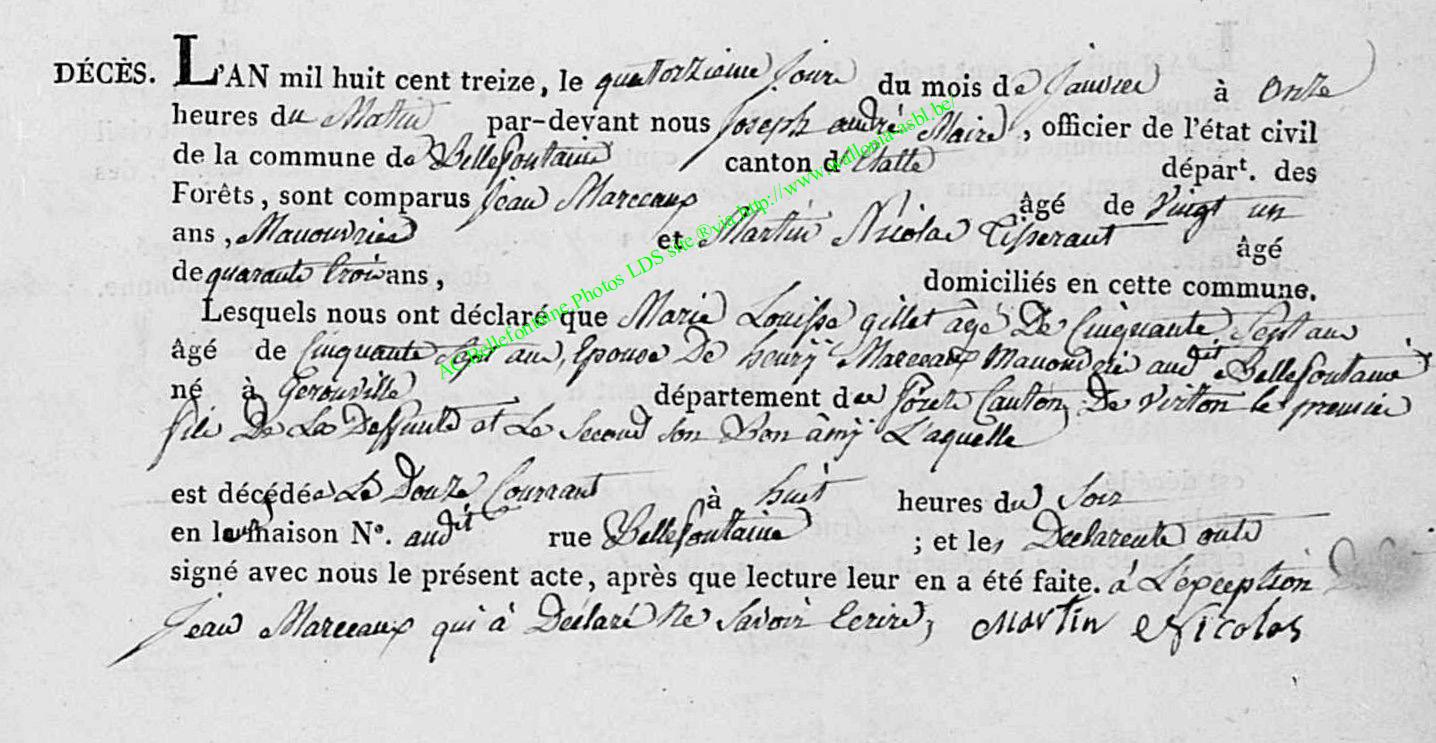 DÉCÈS. L'AN mil huit cent treize, le quatorzieme Jour du mois de Janvier à onze
heures du Matin par-devant nous Joseph andré Maire, officier de l'état civil
de la commune de Bellefontaine canton d'Etalle départ. des
Forêts, sont comparus Jean Marceaux âgé de vingt un
ans, Manouvrier et Martin Nicolas Tisserant âgé
de quarante trois ans, domiciliés en cette commune.
Lesquels nous ont déclaré que Marie Louisse gillet âgé De Cinquante Sept ans
âgé de Cinquante Sept ans, Epouse De henrij Marceaux Manouvrié audit Bellefontaine
né à Gerouville département des Foret Canton De virton le premier
fils De La Deffunte et Le Second Son Bon âmij L'aquelle
est décédée Le Douze Courrant à huit heures du Soir
en la maison No. audit rue Bellefontaine ; et les Declarents onts
signé avec nous le présent acte, après que lecture leur en a été faite. à L'exception
Jean Marceaux qui à Déclaré Ne Savoir Ecrire, Martin Nicolas
AC Bellefontaine Photos LDS site ® via http://www.wallonia-asbl.be/